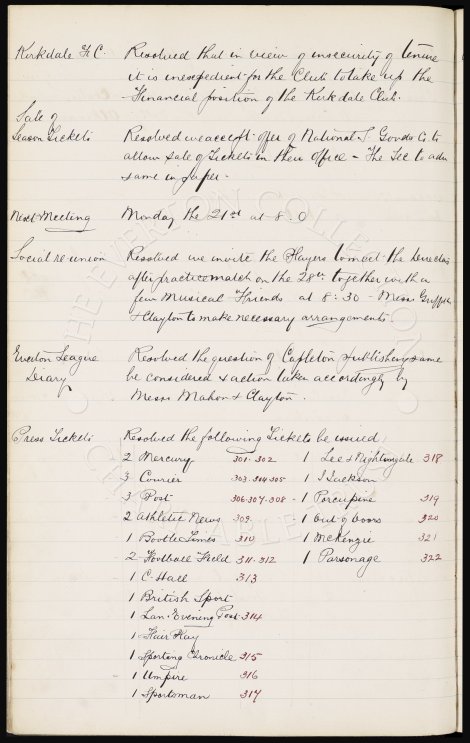 Kirkdale F.C. Resolved that in view of insecurity of tenure
it is inexpedient for the Club to take up the
Financial position of the Kirkdale Club.
Sale of
Season Tickets Resolved we accept offer of National S. Goods Co. to
allow sale of Tickets in their Office - The Sec to adv
same in paper.
Next Meeting Monday the 21st at 8.0
Social re-union Resolved we invite the Players to meet the Directors
after practice match on the 28th together with a
few Musical Friends at 8.30 - Messrs Griffiths
& Clayton to make necessary arrangements
Everton League
Diary Resolved the question of & publishing same
be considered & action taken accordingly by
Messrs Mahon & Clayton.
Press Tickets Resolved the following Tickets be issued,
2 Mercury 301-302 1 Lee & Nightingale 318
3 Courier 303.304.305 1 J Jackson
3 Post 306.307.308 - 1 Porcupine 319
2 Athletic News 309. 1 Out of Doors 320
1 Bootle Times 310 1 McKenzie 321
2 Football Field 311-312 1 Parsonage 322
1 C. Hall 313
1 British Sport
1 Lan. Evening Post 314
1 Fair Play
1 Sporting Chronicle 315
1 Umpire 316
1 Sportsman 317
THE EVERTON COLLECTION